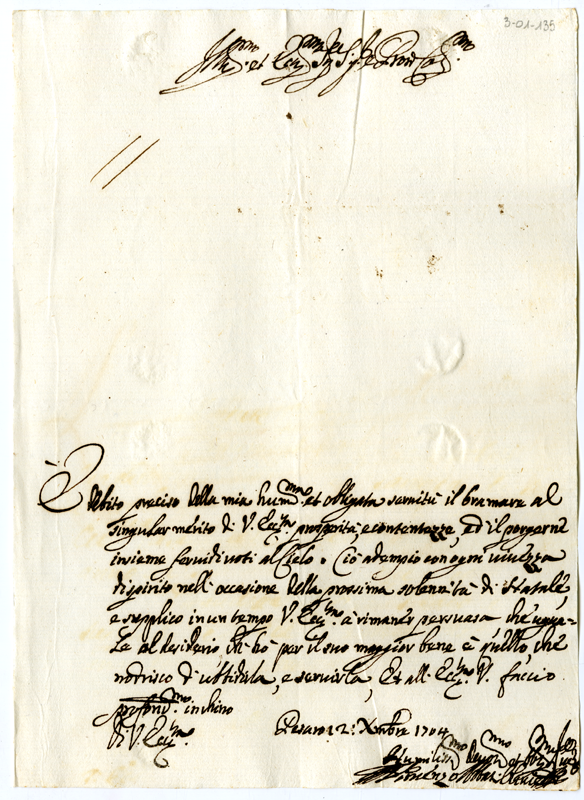 3-01-135
Ill.mo et Ecc.mo Sig.r Sig.r e Pron Col.mo
È debito preciso della mia hum.ma et obligata servitù il bramare al
singular merito di V. Ecc.za prosperità, e contentezze, ed il porgerne
insieme fervidi voti al Cielo. Ciò adempio con ogni vivezza
di spirito nell' occasione della prossima solennità di Natale,
e supplico in un tempo V. Ecc.za à rimaner persuasa che ugua-
le al desiderio, che hò per il suo maggior bene è quello, che
nodrisco di ubbidirla, e servirla, Et all' Ecc.za V. faccio
profond.mo inchino
Di V. Ecc.za
Pesaro 12: Xmbre 1704
Humiliss.mo Devot.mo et